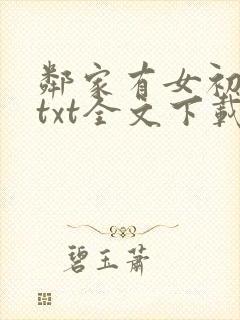 鄰家有女初
txt全文下載
碧玉蕭